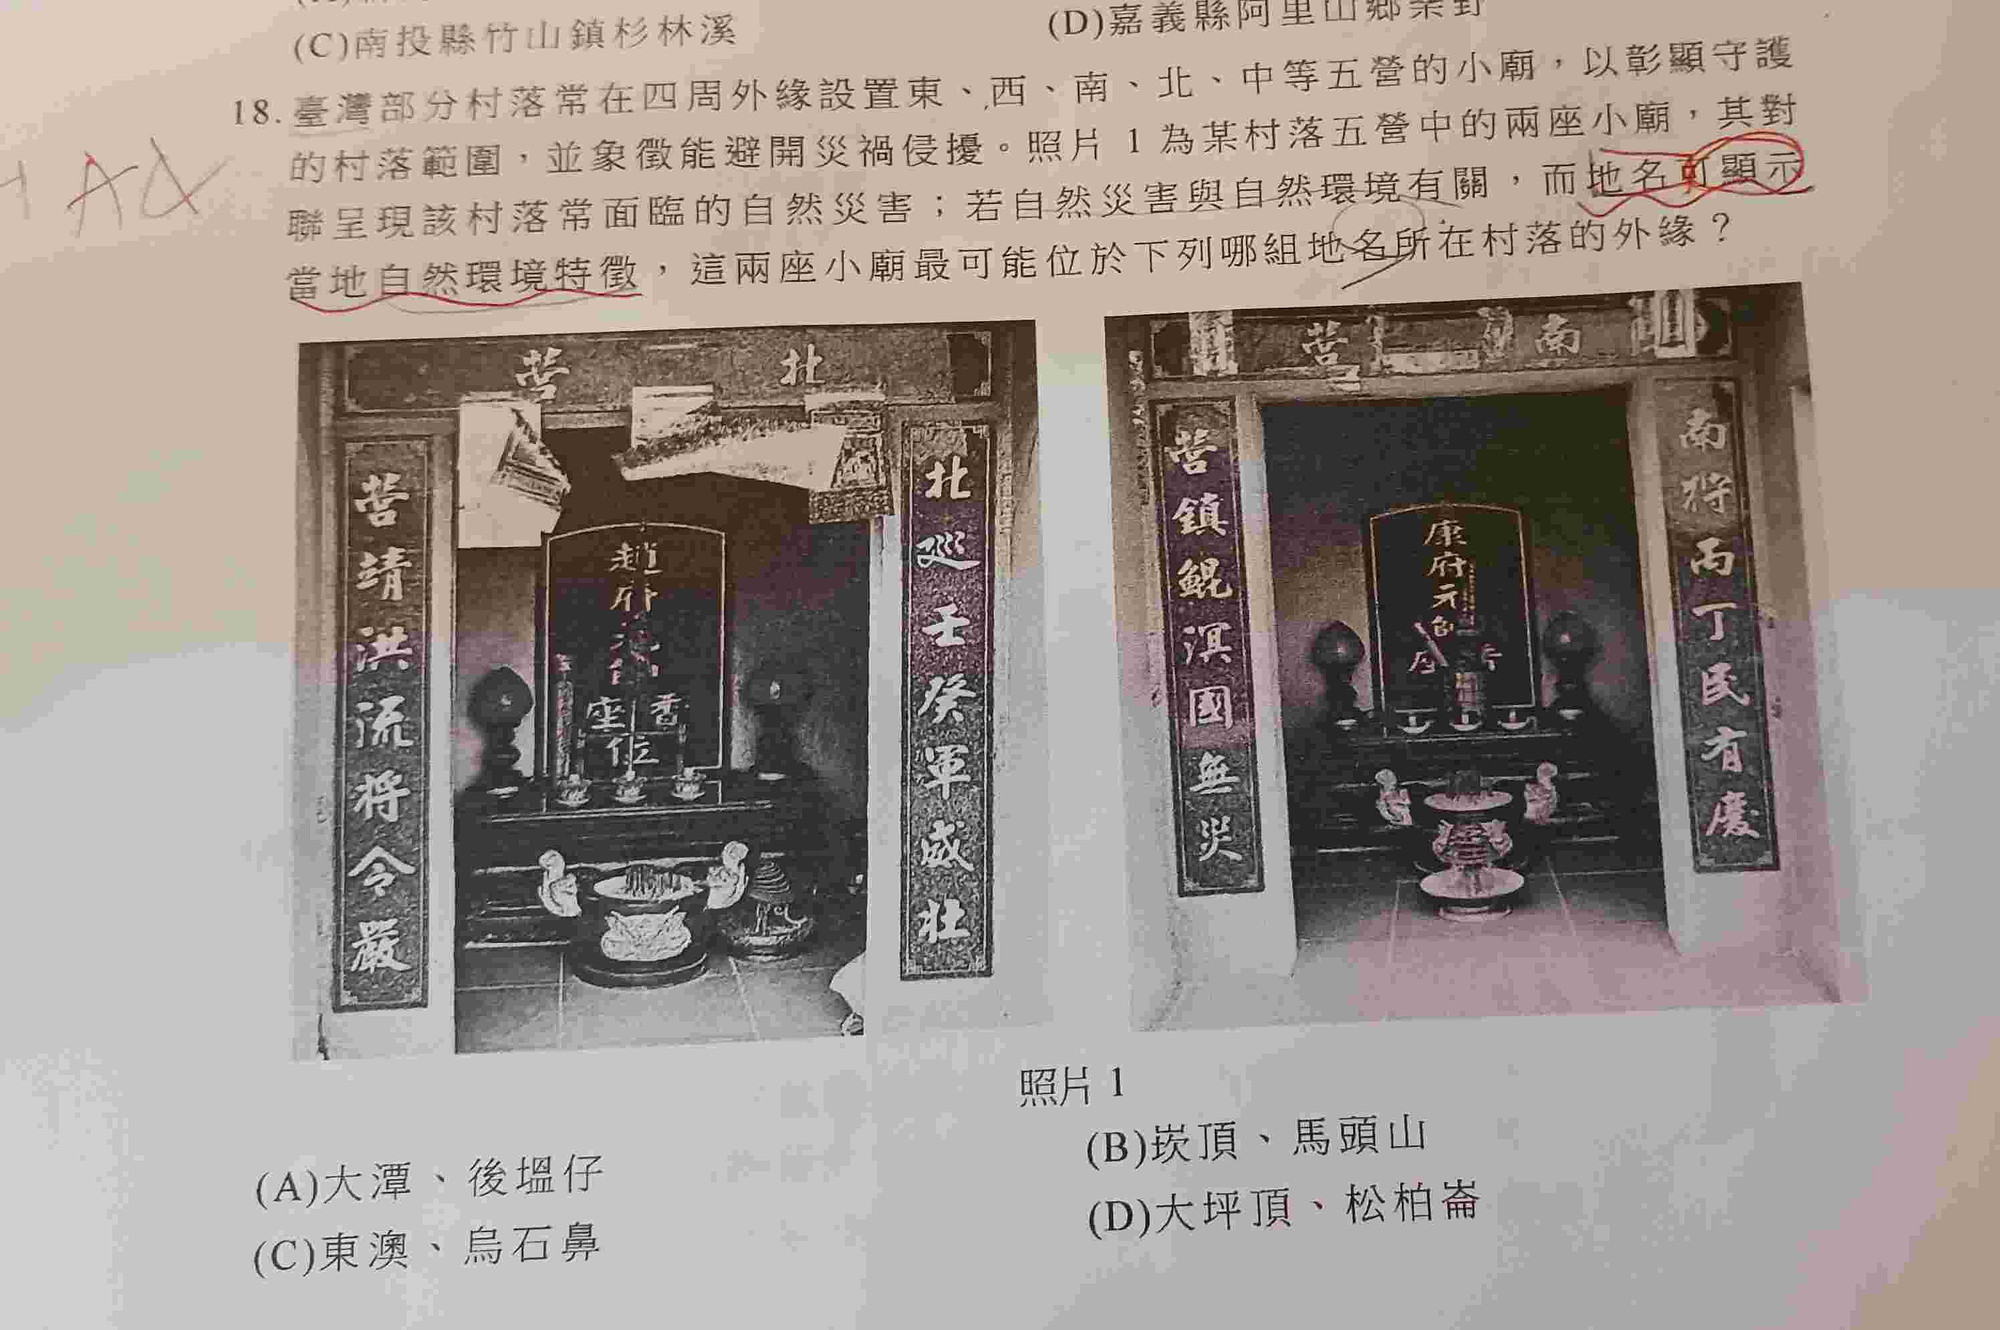 (C)南投縣竹山鎮杉林溪
(D)嘉義縣阿里山鄉
18.臺灣部分村落常在四周外緣設置東、西、南、北、中等五營的小廟，以彰顯守護
的村落範圍，並象徵能避開災禍侵擾。照片 1 為某村落五營中的兩座小廟，其對
聯呈現該村落常面臨的自然災害；若自然災害與自然環境有關，而地名可顯示
當地自然環境特徵，這兩座小廟最可能位於下列哪組地名所在村落的外緣？
營 北
北巡壬癸軍威壯
營靖洪流將令嚴
趙府元
香座位
營 南
南狩丙丁民有慶
營鎮鯤溟國無災
康府元帥
照片 1
(A)大潭、後塭仔
(B)崁頂、馬頭山
(C)東澳、烏石鼻
(D)大坪頂、松柏崙